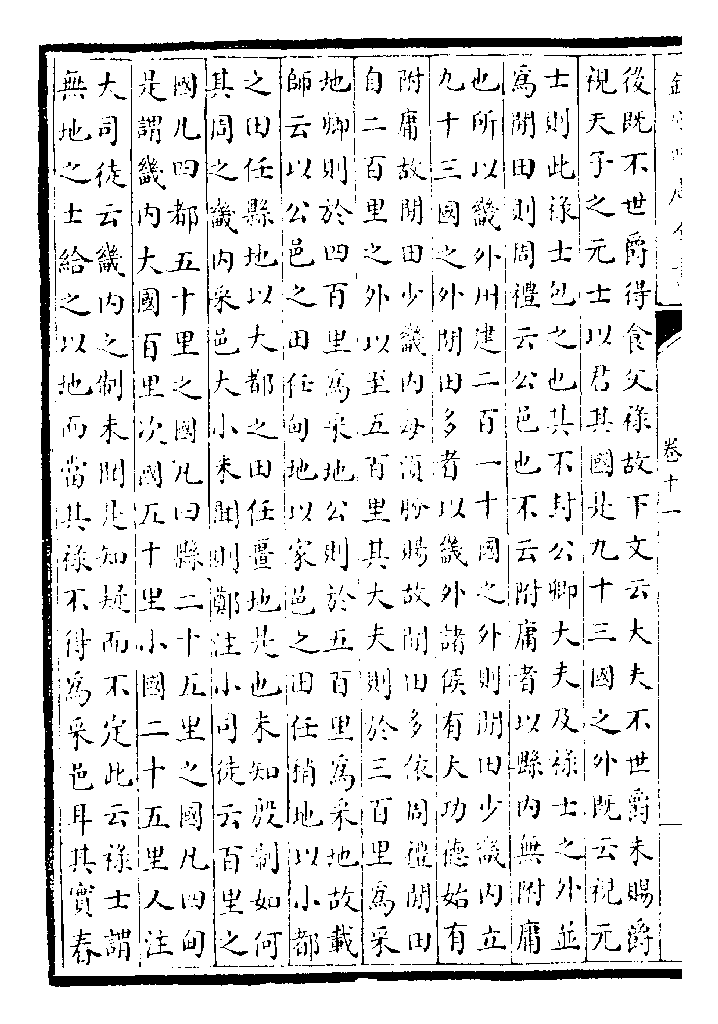 欽定四庫全書
卷十一
後既不世爵得食父祿故下文云大夫不世爵未賜爵
視天子之元士以君其國是九十三國之外既云視元
士則此祿士包之也其不封公卿大夫及祿士之外並
為閒田則周禮云公邑也不云附庸者以縣內無附庸
也所以畿外州建二百一十國之外則閒田少畿內立
九十三國之外閒田多者以畿外諸侯有大功德始有
附庸故閒田少畿內每須朌賜故閒田多依周禮閒田
自二百里之外以至五百里其大夫則於三百里為采
地卿則於四百里為采地公則於五百里為采地故載
師云以公邑之田任甸地以家邑之田任稍地以小都
之田任縣地以大都之田任畺地是也未知殷制如何
其周之畿內采邑大小未聞則鄭注小司徒云百里之
國凡四都五十里之國凡四縣二十五里之國凡四甸
是謂畿內大國百里次國五十里小國二十五里人注
大司徒云畿內之制未聞是知疑而不定此云祿士謂
無地之士給之以地而當其祿不得為采邑耳其實春